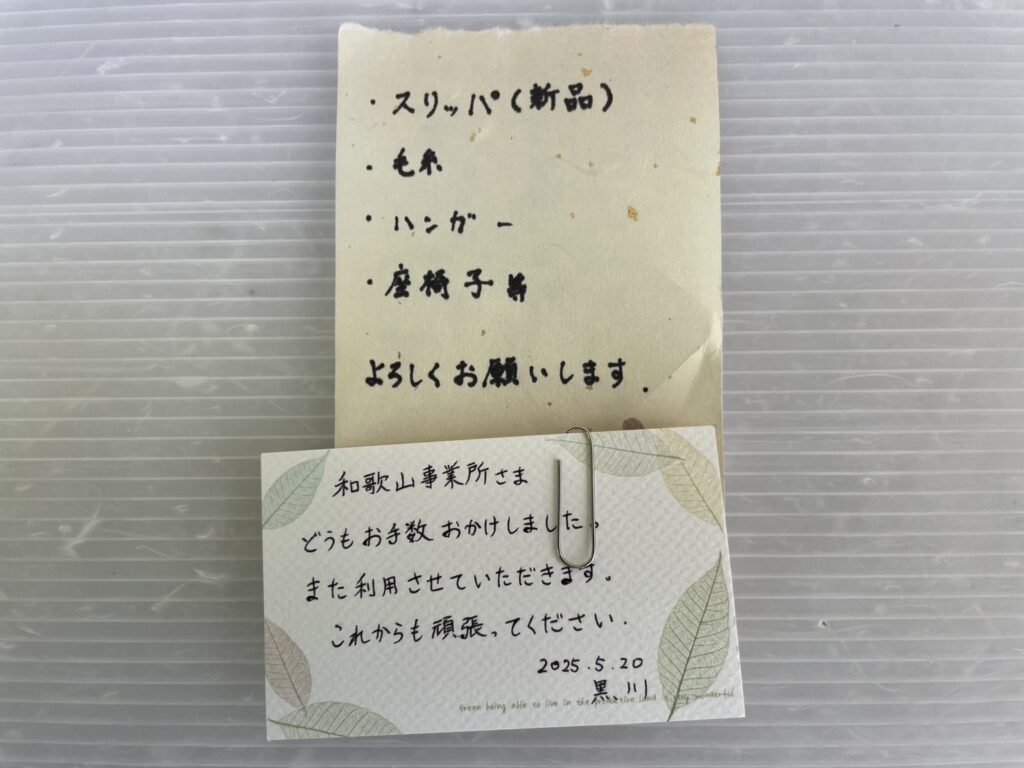 ・スリッパ(新品)
・毛糸
・ハンガー
・座椅子等
よろしくお願いします.
和歌山事業所さま
どうもお手数おかけしました。
また利用させていただきます。
これからも頑張ってください.
2025.5.20
黒川
Green being able to live in the productive land is very wonderful